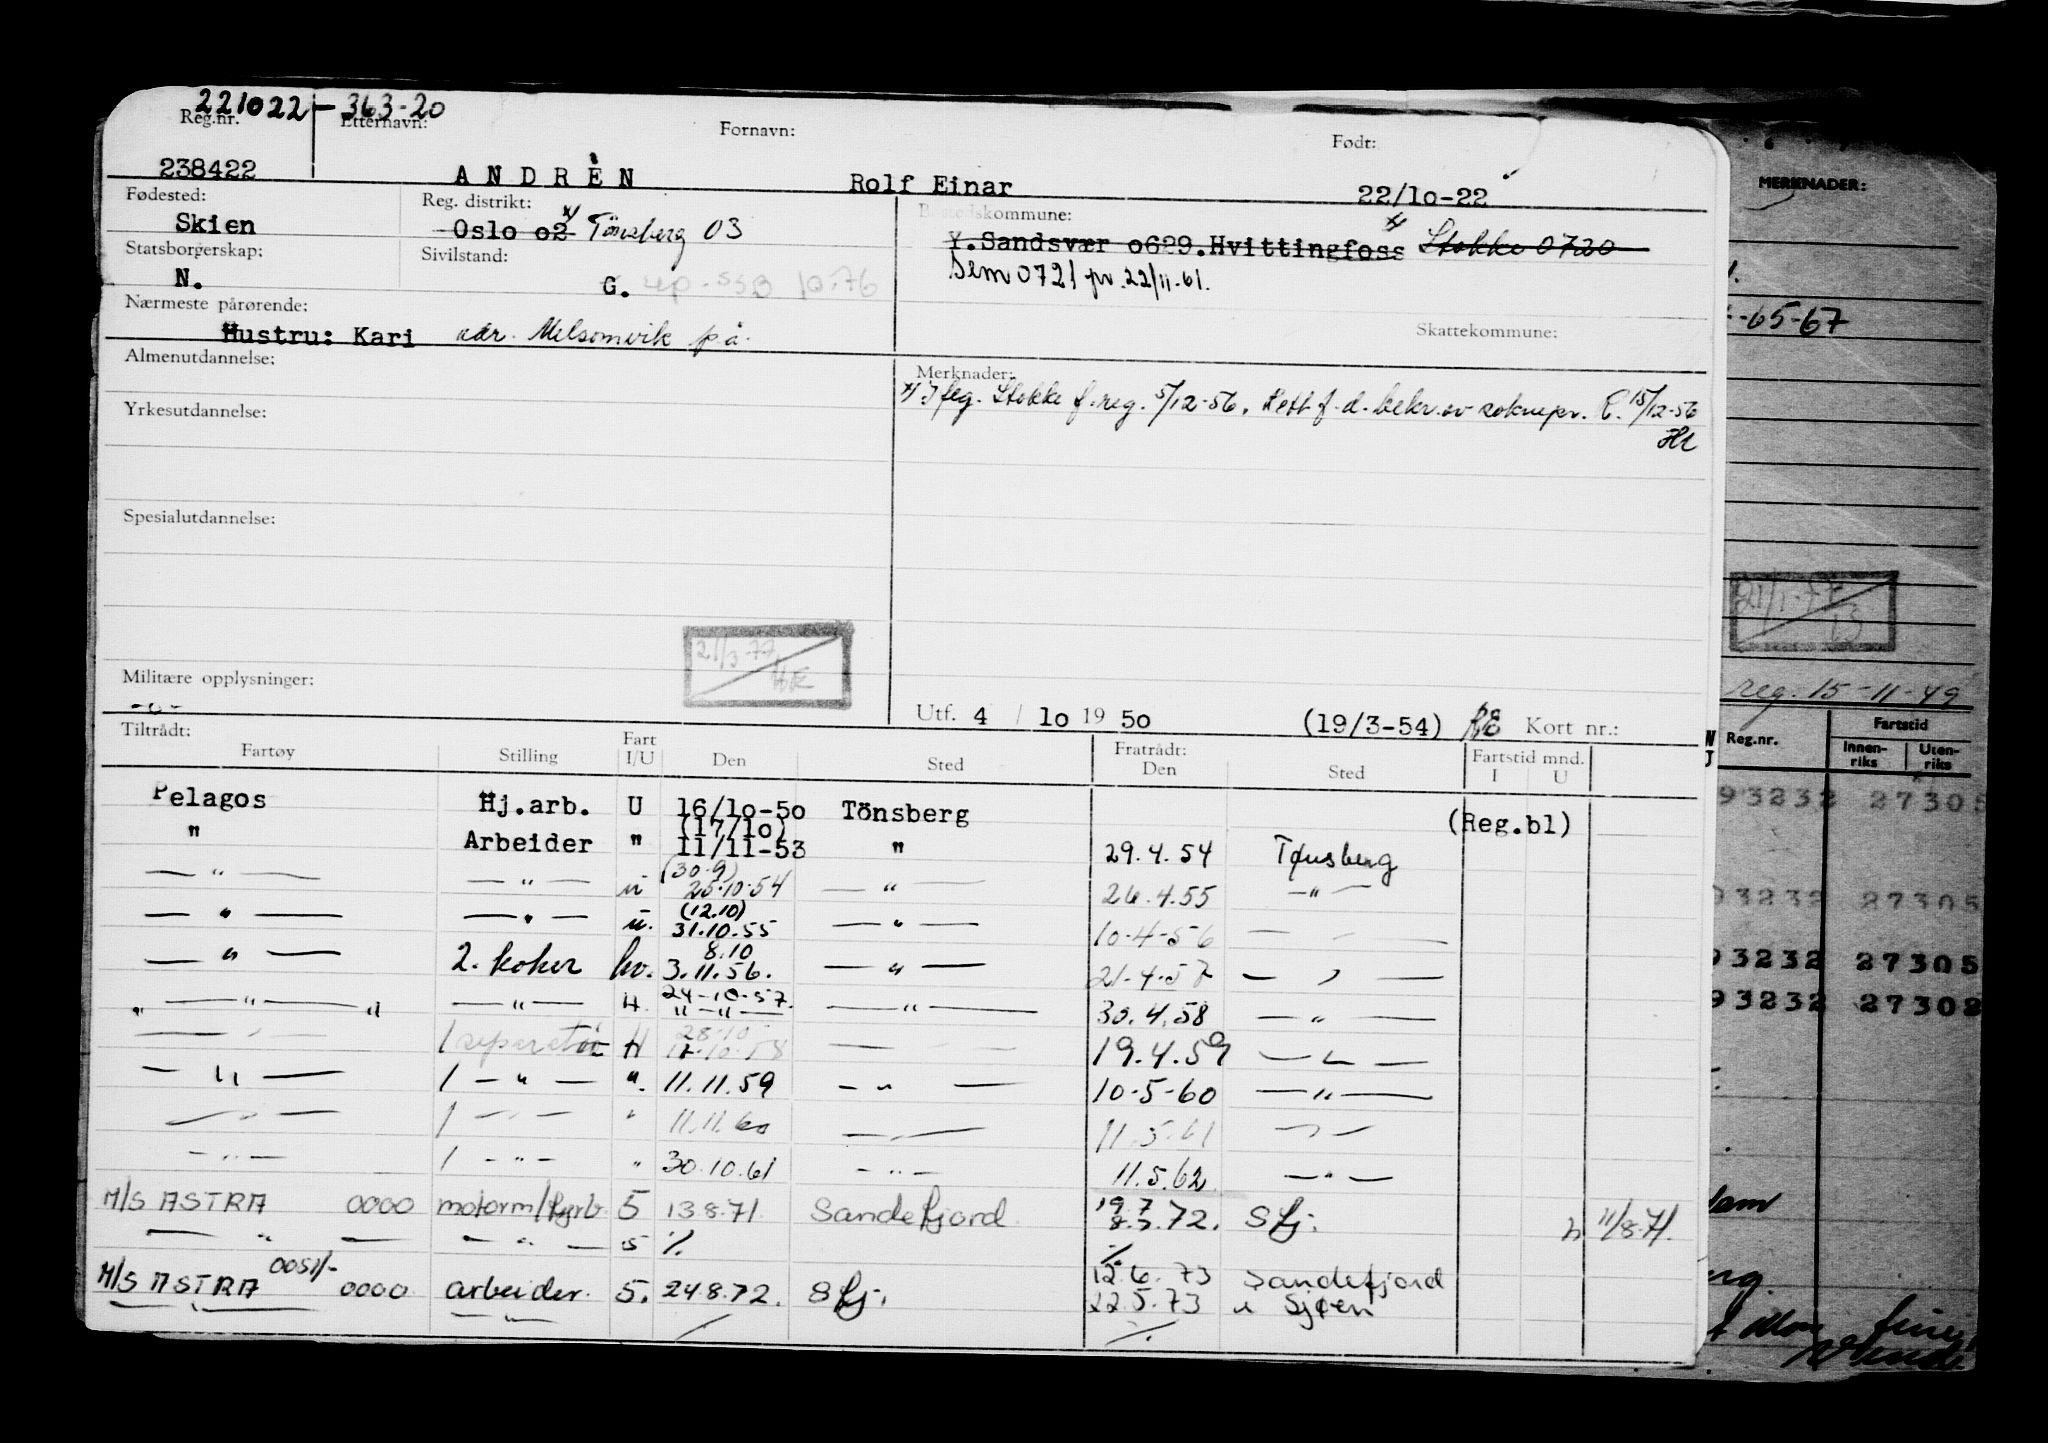 221022-363-20
Reg.nr. Etternavn: Fornavn: Født:
238422 ANDRÈN Rolf Einar 22/10-22
Fødested: Reg. distrikt: Bostedskommune:
Skien Oslo 02 Tönsberg 03 Y.Sandsvær 0629.Hvittingfoss Stokke 0720
Sem 0721 pr. 22/11-61.
Statsborgerskap: Sivilstand:
N. G. rep. SSB 10-76
Nærmeste pårørende: Skattekommune:
Hustru: Kari adr. Melsomvik p.å.
Almenutdannelse: Merknader:
x) I flg. Stokke f.reg. 5/12-56. f.d. bekr. av 15/12-56
HL
Yrkesutdannelse:
Spesialutdannelse:
21/3-77
Militære opplysninger:
-o-
Utf. 4 / 10 19 50 (19/3-54) Kort nr.:
Tiltrådt: Fratrådt:
Fartøy Stilling Fart I/U Den Sted Den Sted Fartstid mnd. I U
Pelagos Hj.arb. U 16/10-50 Tönsberg (Reg.bl)
(17/10)
" Arbeider " 11/11-53 " 29.4.54 Tønsberg
(30.9)
— " — — " — u 25.10.54 — " — 26.4.55 — " —
(12.10)
— " — — " — u. 31.10.55 — " — 10-4-56 — " —
8.10
— " — 2. koker hv. 3.11.56. — " — 21-4-57 — " —
24-10-57.
" — " — " — " — H. " — " — — " — 30.4.58 — " —
28-10
— " — 1 separatör H 17.10.58 — " — 19.4.59 — " —
— " — 1 — " — ". 11.11.59 — " — 10-5-60 — " —
— " — 1 — " — " 11.11.60 — " — 11.5.61 — " —
— " — 1 — " — " 30.10.61 — " — 11.5.62 — " —
M/S ASTRA 0000 motorm/fyrb. 5 13.8.71. Sandefjord 19.7 8.5.72. Sfj. h 11/8.71.
— " — — " — 5 ./. ./.
M/S ASTRA 0051/- 0000 arbeider. 5. 24.8.72. Sfj. 12.6.73 Sandefjord
— " — — " — 22.5.73 i Sjøen
./.
MERKNADER:
-65-67
21/1-77
reg. 15-11-49
Reg.nr. Fartstid
Innen-riks Uten-riks
93232 27305
93232 27305
93232 27305
93232 27302